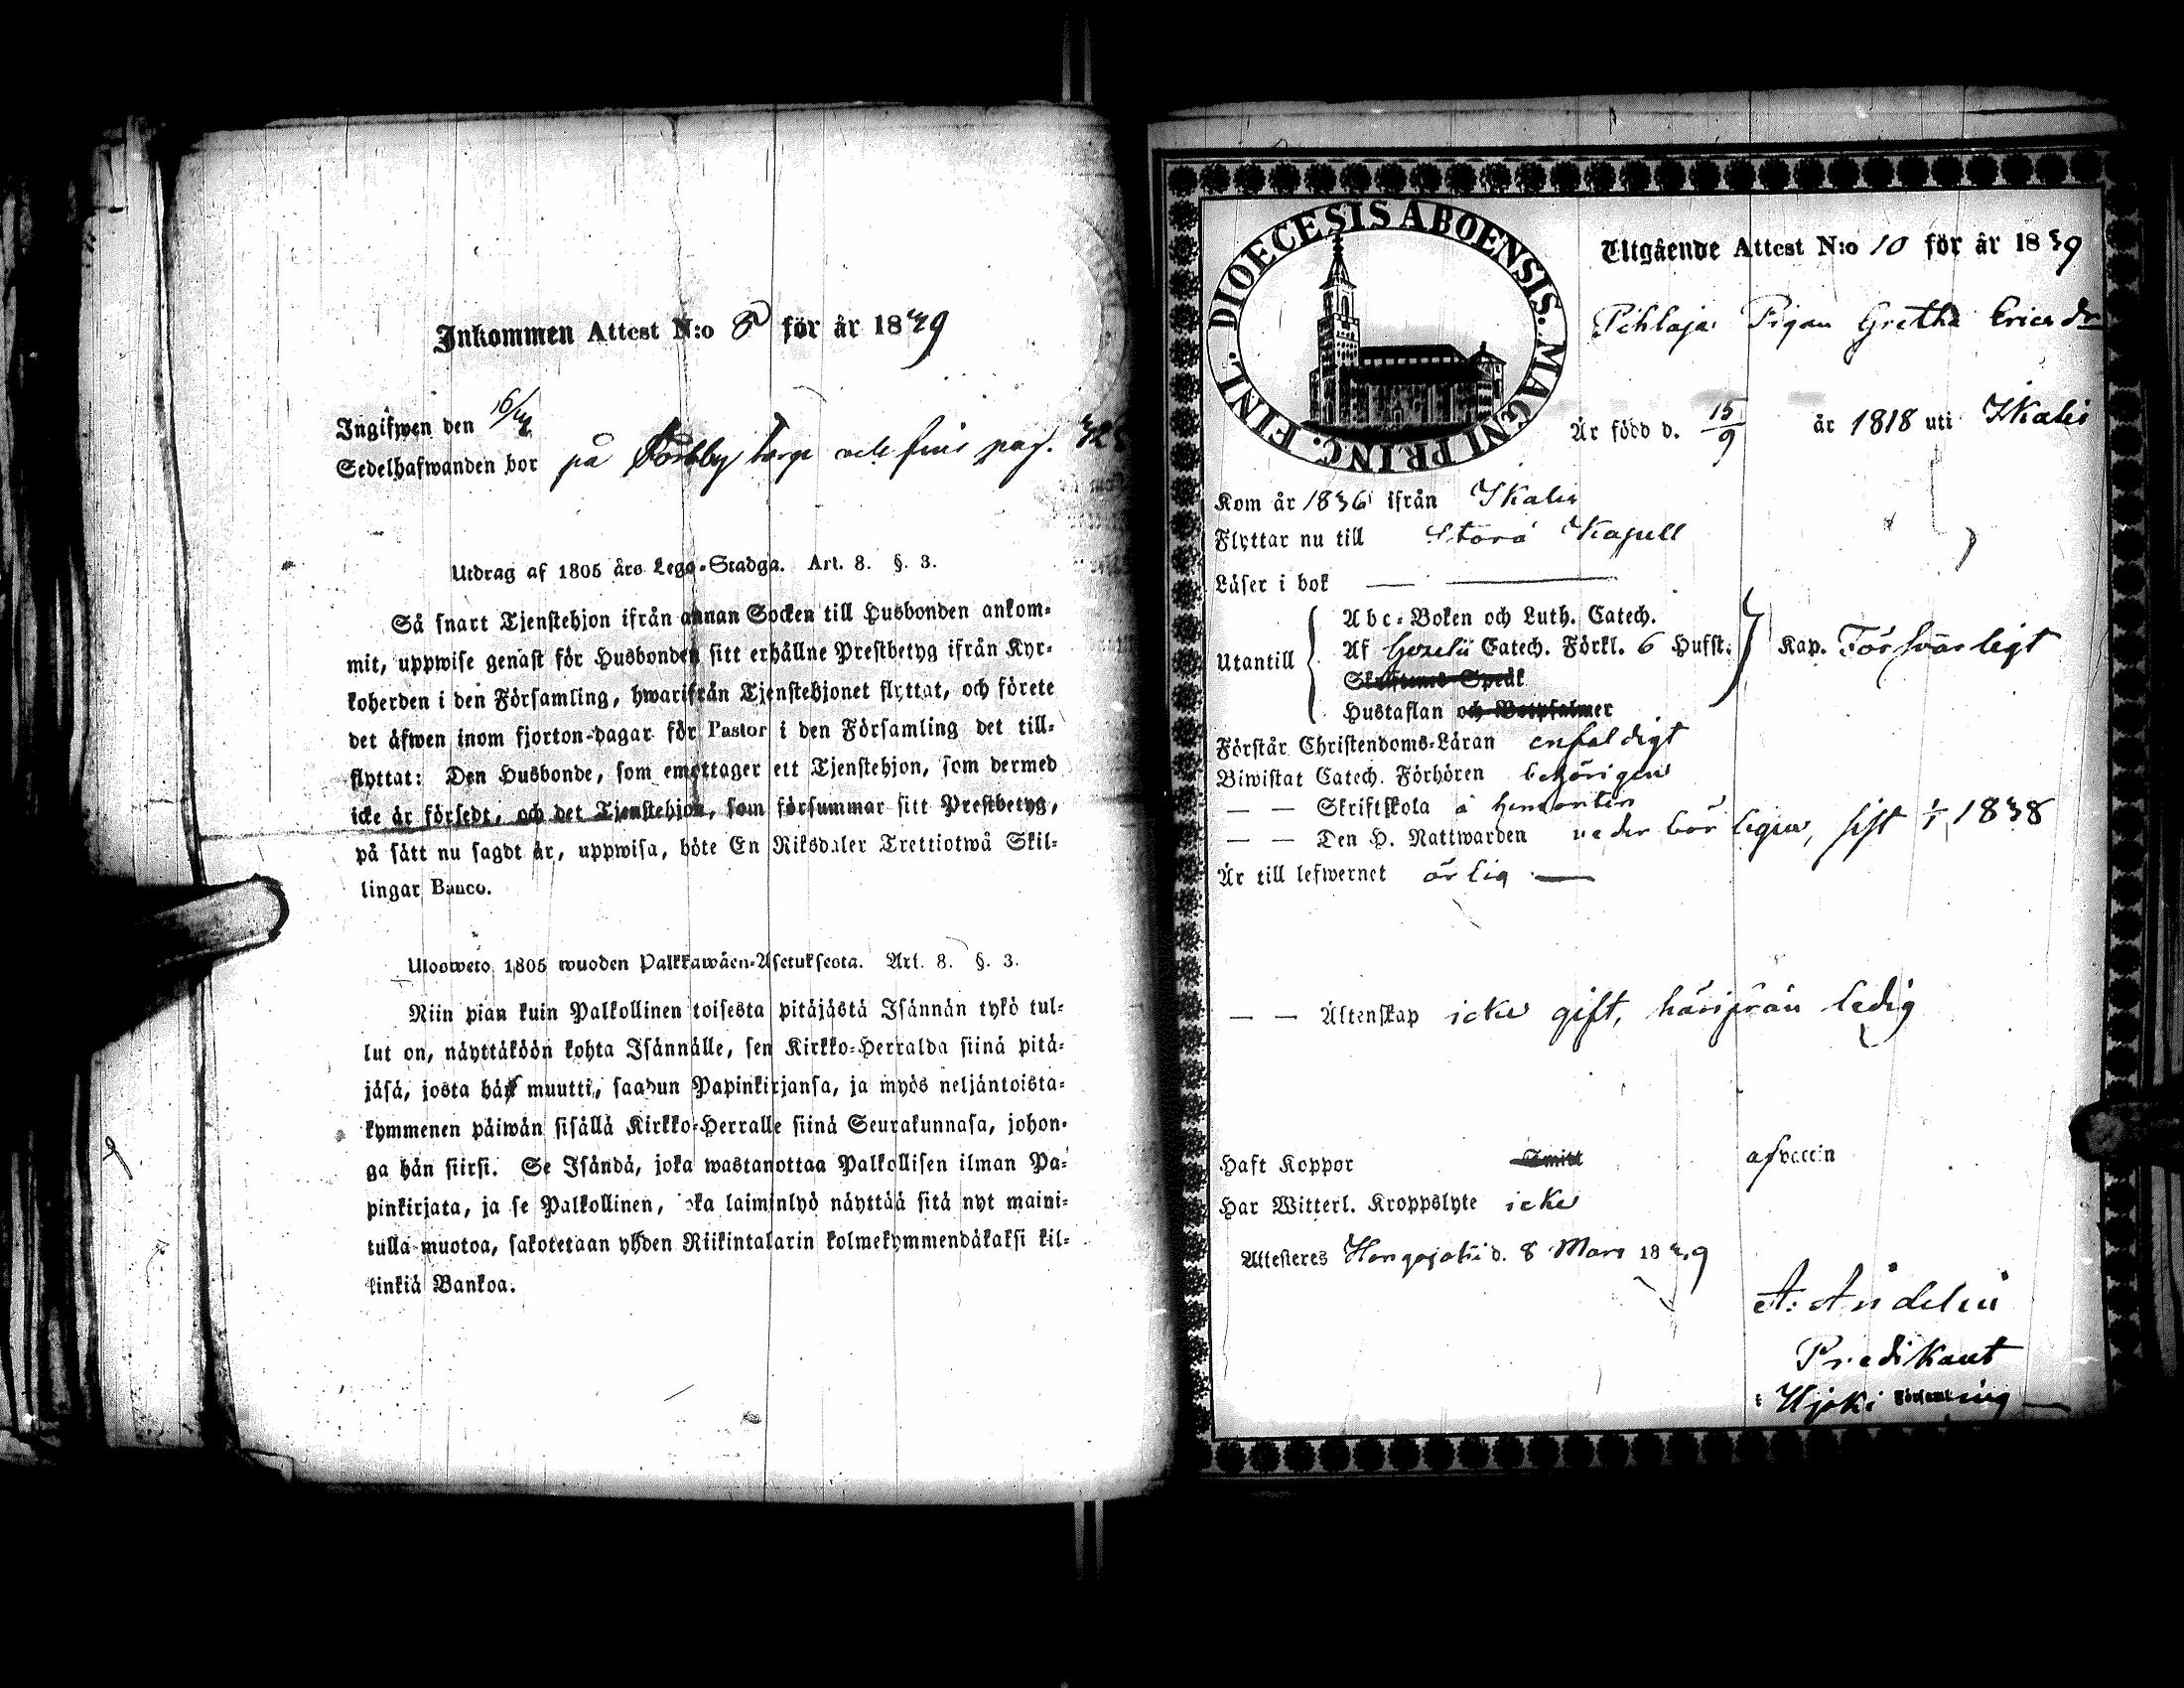 Inkommen Attest N:o 8 för år 1839
Ingifwen den 16/4
Sedelhafwanden bor på torp och fins pag.
Utdrag af 1805 års Lego-Stadga. Art. 8. §. 3.
Så snart Tjenstehjon ifrån annan Socken till Husbonden ankom-
mit, uppwise genast för Husbonden sitt erhållne Prestbetyg ifrån Kyr-
koherden i den Församling, hwarifrån Tjenstehjonet flyttat, och förete
det äfwen inom fjorton dagar för Pastor i den Församling det till-
flyttat: Den Husbonde, som emottager ett Tjenstehjon, som dermed
icke är försedt, och det Tjenstehjon, som försummar sitt Prestbetyg,
på sätt nu sagdt är, uppwisa, böte En Riksdaler Trettiotwå Skil-
lingar Banco.
Ulosweto 1805 wuoden Palkkawäen-Asetuksesta. Art. 8. §. 3.
Niin pian kuin Palkollinen toisesta pitäjästä Isännän tykö tul-
lut on, näyttäköön kohta Isännälle, sen Kirkko-Herralda siinä pitä-
jäsä, josta hän muutti, saadun Papinkirjansa, ja myös neljäntoista-
kymmenen päiwän sisällä Kirkko-Herralle siinä Seurakunnasa, johon-
ga hän siirsi. Se Isändä, joka wastanottaa Palkollisen ilman Pa-
pinkirjata, ja se Palkollinen, joka laiminlyö näyttää sitä nyt maini-
tulla muotoa, sakotetaan yhden Riikintalarin kolmekymmendäkaksi kil-
linkiä Bankoa.
DIOECESIS ABOENSIS. MAGNI PRINC. FINL.
Utgående Attest N:o 10 för år 1839
Pihlaja Pigan Gretha Ericsdr
Är född d. 15/9 år 1818 uti Ikalis
Kom år 1836 ifrån Ikalis
Flyttar nu till Storå Kapell
Läser i bok — —
Utantill { Abc-Boken och Luth. Catech.
Af Gezelii Catech. Förkl. 6 Hufst. } Kap. Försvarligt
Skriftens Språk
Hustaflan och Botpsalmer
Förstår Christendoms-Läran enfaldigt
Biwistat Catech. Förhören behörigen
— — Skriftskola å hemorten
— — Den H. Nattwarden vederbörligen, sist 1/1 1838
Är till lefwernet ärlig —
— — Äktenskap icke gift, härifrån ledig
Haft Koppor af vaccin
Har Witterl. Kroppslyte icke
Attesteres Hongojoki d. 8 Mars 1839
A: Andelin
Predikant
i Hjoki Församling —